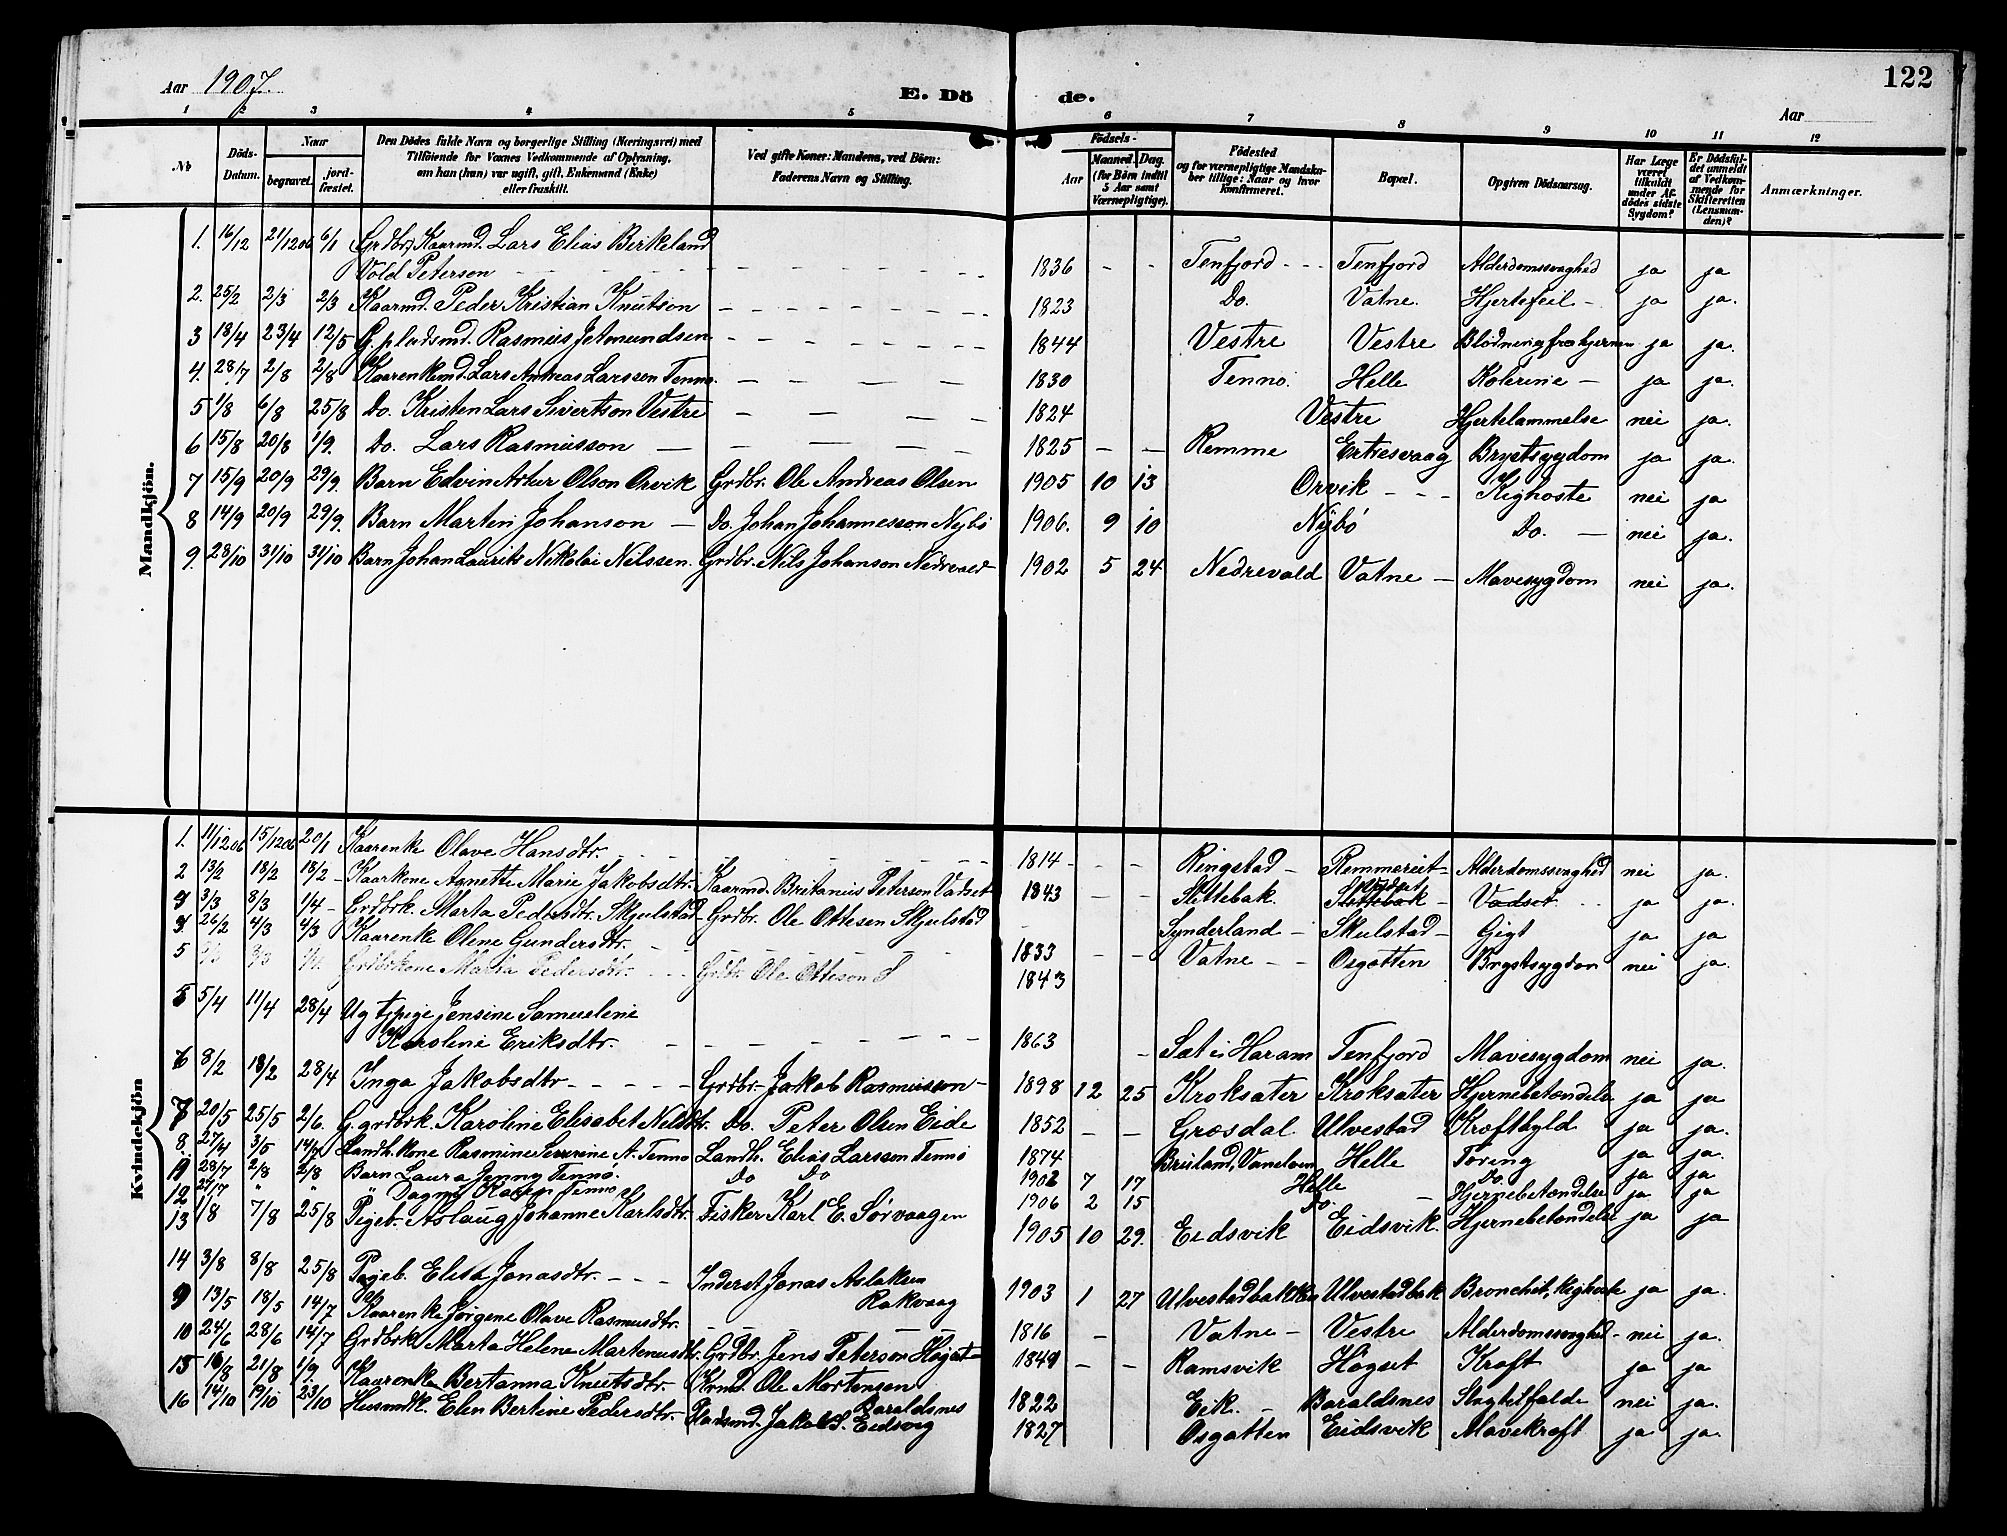 Aar 1907.
E. Dö de.
122
Aar
1 2 3 4 5 6 7 8 9 10 11 12
No
Döds-Datum.
Naar
begravet. jord-fæstet.
Den Dödes fulde Navn og borgerlige Stilling (Næringsvei) med
Tilföiende for Voxnes Vedkommende af Oplysning,
om han (hun) var ugift, gift, Enkemand (Enke)
eller fraskilt.
Ved gifte Koner: Mandens, ved Börn:
Faderens Navn og Stilling.
Födsels-
Aar Maaned. Dag.
(for Börn indtil
5 Aar samt
Værnepligtige).
Födested
og for værnepligtige Mandska-
ber tillige: Naar og hvor
konfirmeret.
Bopæl.
Opgiven Dödsaarsag.
Har Læge
været
tilkaldt
under Af-
dödes sidste
Sygdom?
Er Dödsfal-
det anmeldt
af Vedkom-
mende for
Skifteretten
(Lensman-
den)?
Anmærkninger.
Mandkjön.
1. 16/12 21/12 06 6/1 Grdbr. Kaarmd. Lars Elias Birkeland
Vold Peterson - - - 1836 - - Tenfjord - - Tenfjord Alderdomssvaghed ja ja
2. 25/2 2/3 2/3 Kaarmd. Peder Kristian Knutson - - - 1823 Do. Vatne. Hjertefeil - ja ja.
3 18/4 23/4 12/5 G. pladsmd. Rasmus Jetmundsen - - - 1844 Vestre Vestre Blödning fra hjernen ja ja.
4. 28/7 2/8 2/8 Kaarenkemd. Lars Andreas Larsson Tennø. - - - 1830 Tennø. Helle Kolerine - ja ja.
5 1/8 6/8 25/8 Do. Kristen Lars Sivertson Vestre - - - 1824 Vestre Hjertelammelse nei ja.
6 15/8 20/8 1/9. Do. Lars Rasmusson - - - 1825 - - Remme Ertresvaag Brystsygdom ja ja.
7 15/9 20/9 29/9. Barn Edvin Artur Olson Orvik Grdbr. Ole Andreas Olsen 1905 10 13 Orvik - - Kighoste nei ja
8 14/9 20/9 29/9. Barn Martin Johanson - Do. Johan Johannesson Nybø 1906. 9 10 Nybø Do. - nei ja.
9. 28/10 31/10 31/10 Barn Johan Laurits Nikolai Nilssen. Grdbr. Nils Johanson Nedrevold 1902 5 24 Nedrevold Vatne - Mavesygdom nei ja.
Kvindekjön
1. 11/12 06 15/12 06 20/1 Kaarenke Olave Hansdtr. - - - 1814 - - - Ringstad - Remmereit - Alderdomssvaghed nei ja.
2 13/2 18/2 18/2 - Kaarkone Agnette Marie Jakobsdtr. Kaarmd. Britanius Peterson Vatset 1843 - - Slettebak. Vadset Slettebak - Vadsot - - ja ja.
3 3/3 8/3 1/4 - Grdbrk. Marta Pedersdtr. Skjulstad - Grdbr. Ole Ottesen Skjulstad Synderland - Skulstad - Gigt ja ja
4 26/2 4/3 4/3 Kaarenke Olene Gundersdtr. - - - 1833 - - Vatne - - Osgotten Brystsygdom nei ja.
5 Grdbrkone Maria Pedersdtr. - - Grdbr. Ole Otteson S 1843
5 5/4 11/4 28/4 Ug tjpige Jensine Samueline
Karoline Eriksdtr. - - - 1863 - Sæt i Haram Tenfjord Mavesygdom nei ja.
6 8/2 18/2 28/4 Inga Jakobsdtr - - - Grdbr. Jakob Rasmusson - 1898 12 25 Kroksater Kroksater Hjernebetændelse ja ja
7 20/5 25/5 2/6. G. grdbrk. Karoline Elisabet Nelsdtr. Do. Peter Olsen Eide 1852 - - Græsdal. Ulvestad Kræftbyld ja ja.
8. 27/4 3/5 14/7 Landh. kone Rasmine Severine A. Tennø Landh. Elias Larsson Tennø 1874 Brusland, Vanelven Helle Tæring ja ja.
11 28/7 2/8 2/8 Barn Laura Jenny Tennø. Do Do 1902 7 17 Helle Do. ja ja
12 27/7 " " Dagny Karen Tennø 1906 2 15 Do - Hjernebetændelse ja. ja
13 1/8 7/8 25/8 Pigeb. Aslaug Johanne Karlsdtr. Fisker Karl E. Sørvaagen 1905 10 29. Eidsvik Eidsvik. Hjernebetændelse ja ja
14 3/8 8/8 25/8 Pigeb. Elisa Jonasdtr. - - - Inderst Jonas Aslaksen
Rakvaag 1903 1 27 Ulvestadbakken Ulvestadbak Bronchit, Kighoste ja ja.
9 13/5 18/5 14/7 Kaarenke Jørgene Olave Rasmusdtr. - - - 1816 - Vatne - Vestre Alderdomssvaghed - nei ja.
10 24/6 28/6 14/7 Grdbrk Marta Helene Martenusdtr. Grdbr. Jens Peterson Hogset 1849 - - Ramsvik Hogset Kræft ja ja
15 16/8 21/8 1/9. Kaarenke Bertanna Knutsdtr. Krmd. Ole Mortensen
Baraldsnes 1822 Eik. - Baraldsnes Slagtilfælde nei ja.
16 14/10 19/10 23/10 Husmdk. Elen Bertine Pedersdtr. - Pladsmd. Jakob S. Eidsvig 1827 Osgotten Eidsvik Mavekræft ja ja.